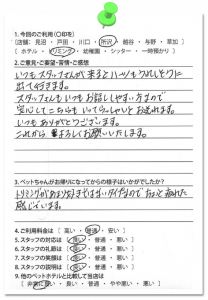 1. 今回のご利用(○印を)
[店舗: 見沼 ・ 戸田 ・ 川口 ・ 所沢 ・ 越谷 ・ 与野 ・ 草加]
[ホテル ・ トリミング ・ 幼稚園 ・ シッター ・ 一時預かり]
2. ご意見・ご要望・苦情・ご感想
いつもスタッフさんが来ると
出て行きます。
スタッフさんもいつもお話しやすい方なので
安心してこちらもいってらっしゃいとお送れます。
いつもありがとうございます。
これからも宜しくお願いします。
3. ペットちゃんがお帰りになってからの様子はいかがでしたか?
トリミングがあまり好きではないタイプなので
感じでいます。
4. ご利用料金は [ 高い ・ 普通 ・ 安い ]
5. スタッフの対応は [ 良い ・ 普通 ・ 悪い ]
6. スタッフの礼節は [ 良い ・ 普通 ・ 悪い ]
7. スタッフの笑顔は [ 良い ・ 普通 ・ 悪い ]
8. スタッフの説明は [ 良い ・ 普通 ・ 悪い ]
9. 他のペットホテルと比較して当店は
[ 非常に良い ・ 良い ・ 普通 ・ やや悪い ・ 悪い ]